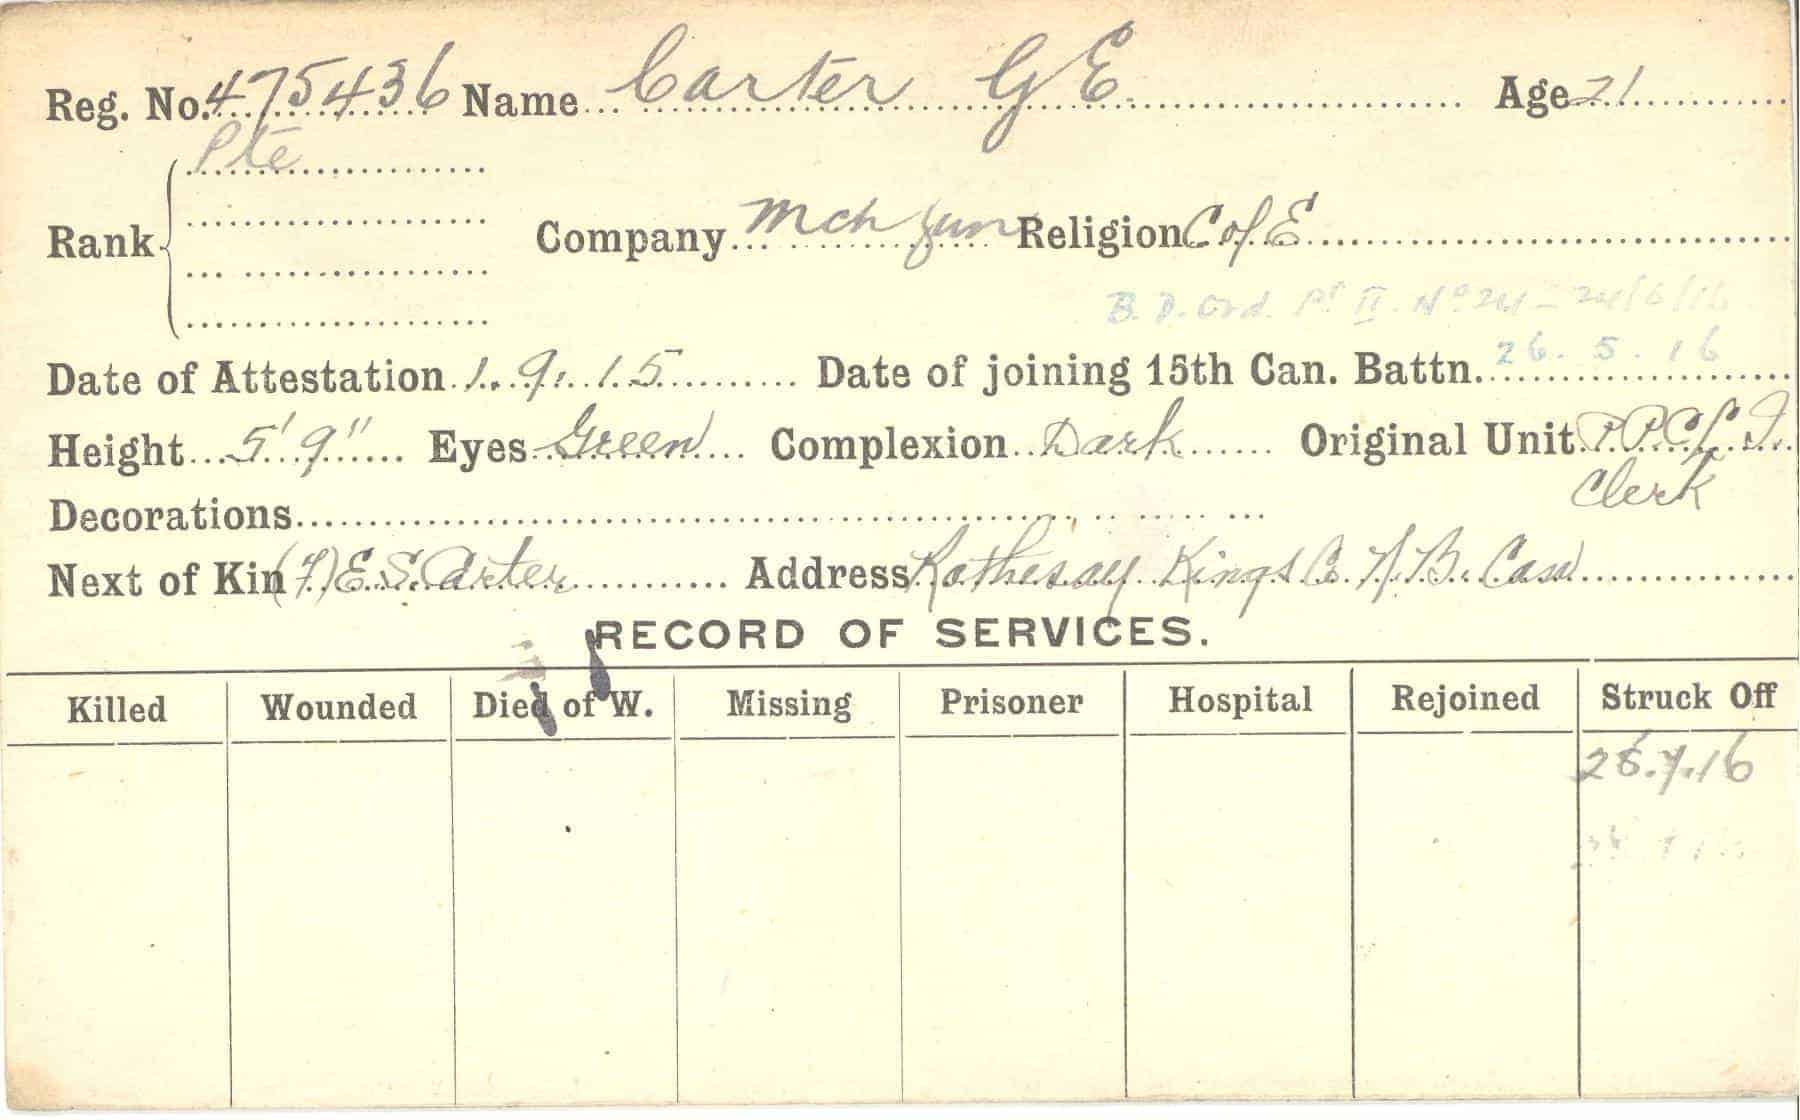 Reg. No. 475436 Name Carter G E Age 21
Pte
Rank Company Mch Gun Religion C of E
B. D. Ord. Pt II. No 24 - 24/6/16
Date of Attestation 1.9.15 Date of joining 15th Can. Battn. 26.5.16
Height 5'9" Eyes Green Complexion Dark Original Unit P.P.C.L.I.
Clerk
Decorations
Next of Kin (F) E.S. Carter Address Rothesay Kings Co. N.B. Can
RECORD OF SERVICES.
Killed Wounded Died of W. Missing Prisoner Hospital Rejoined Struck Off
26.7.16